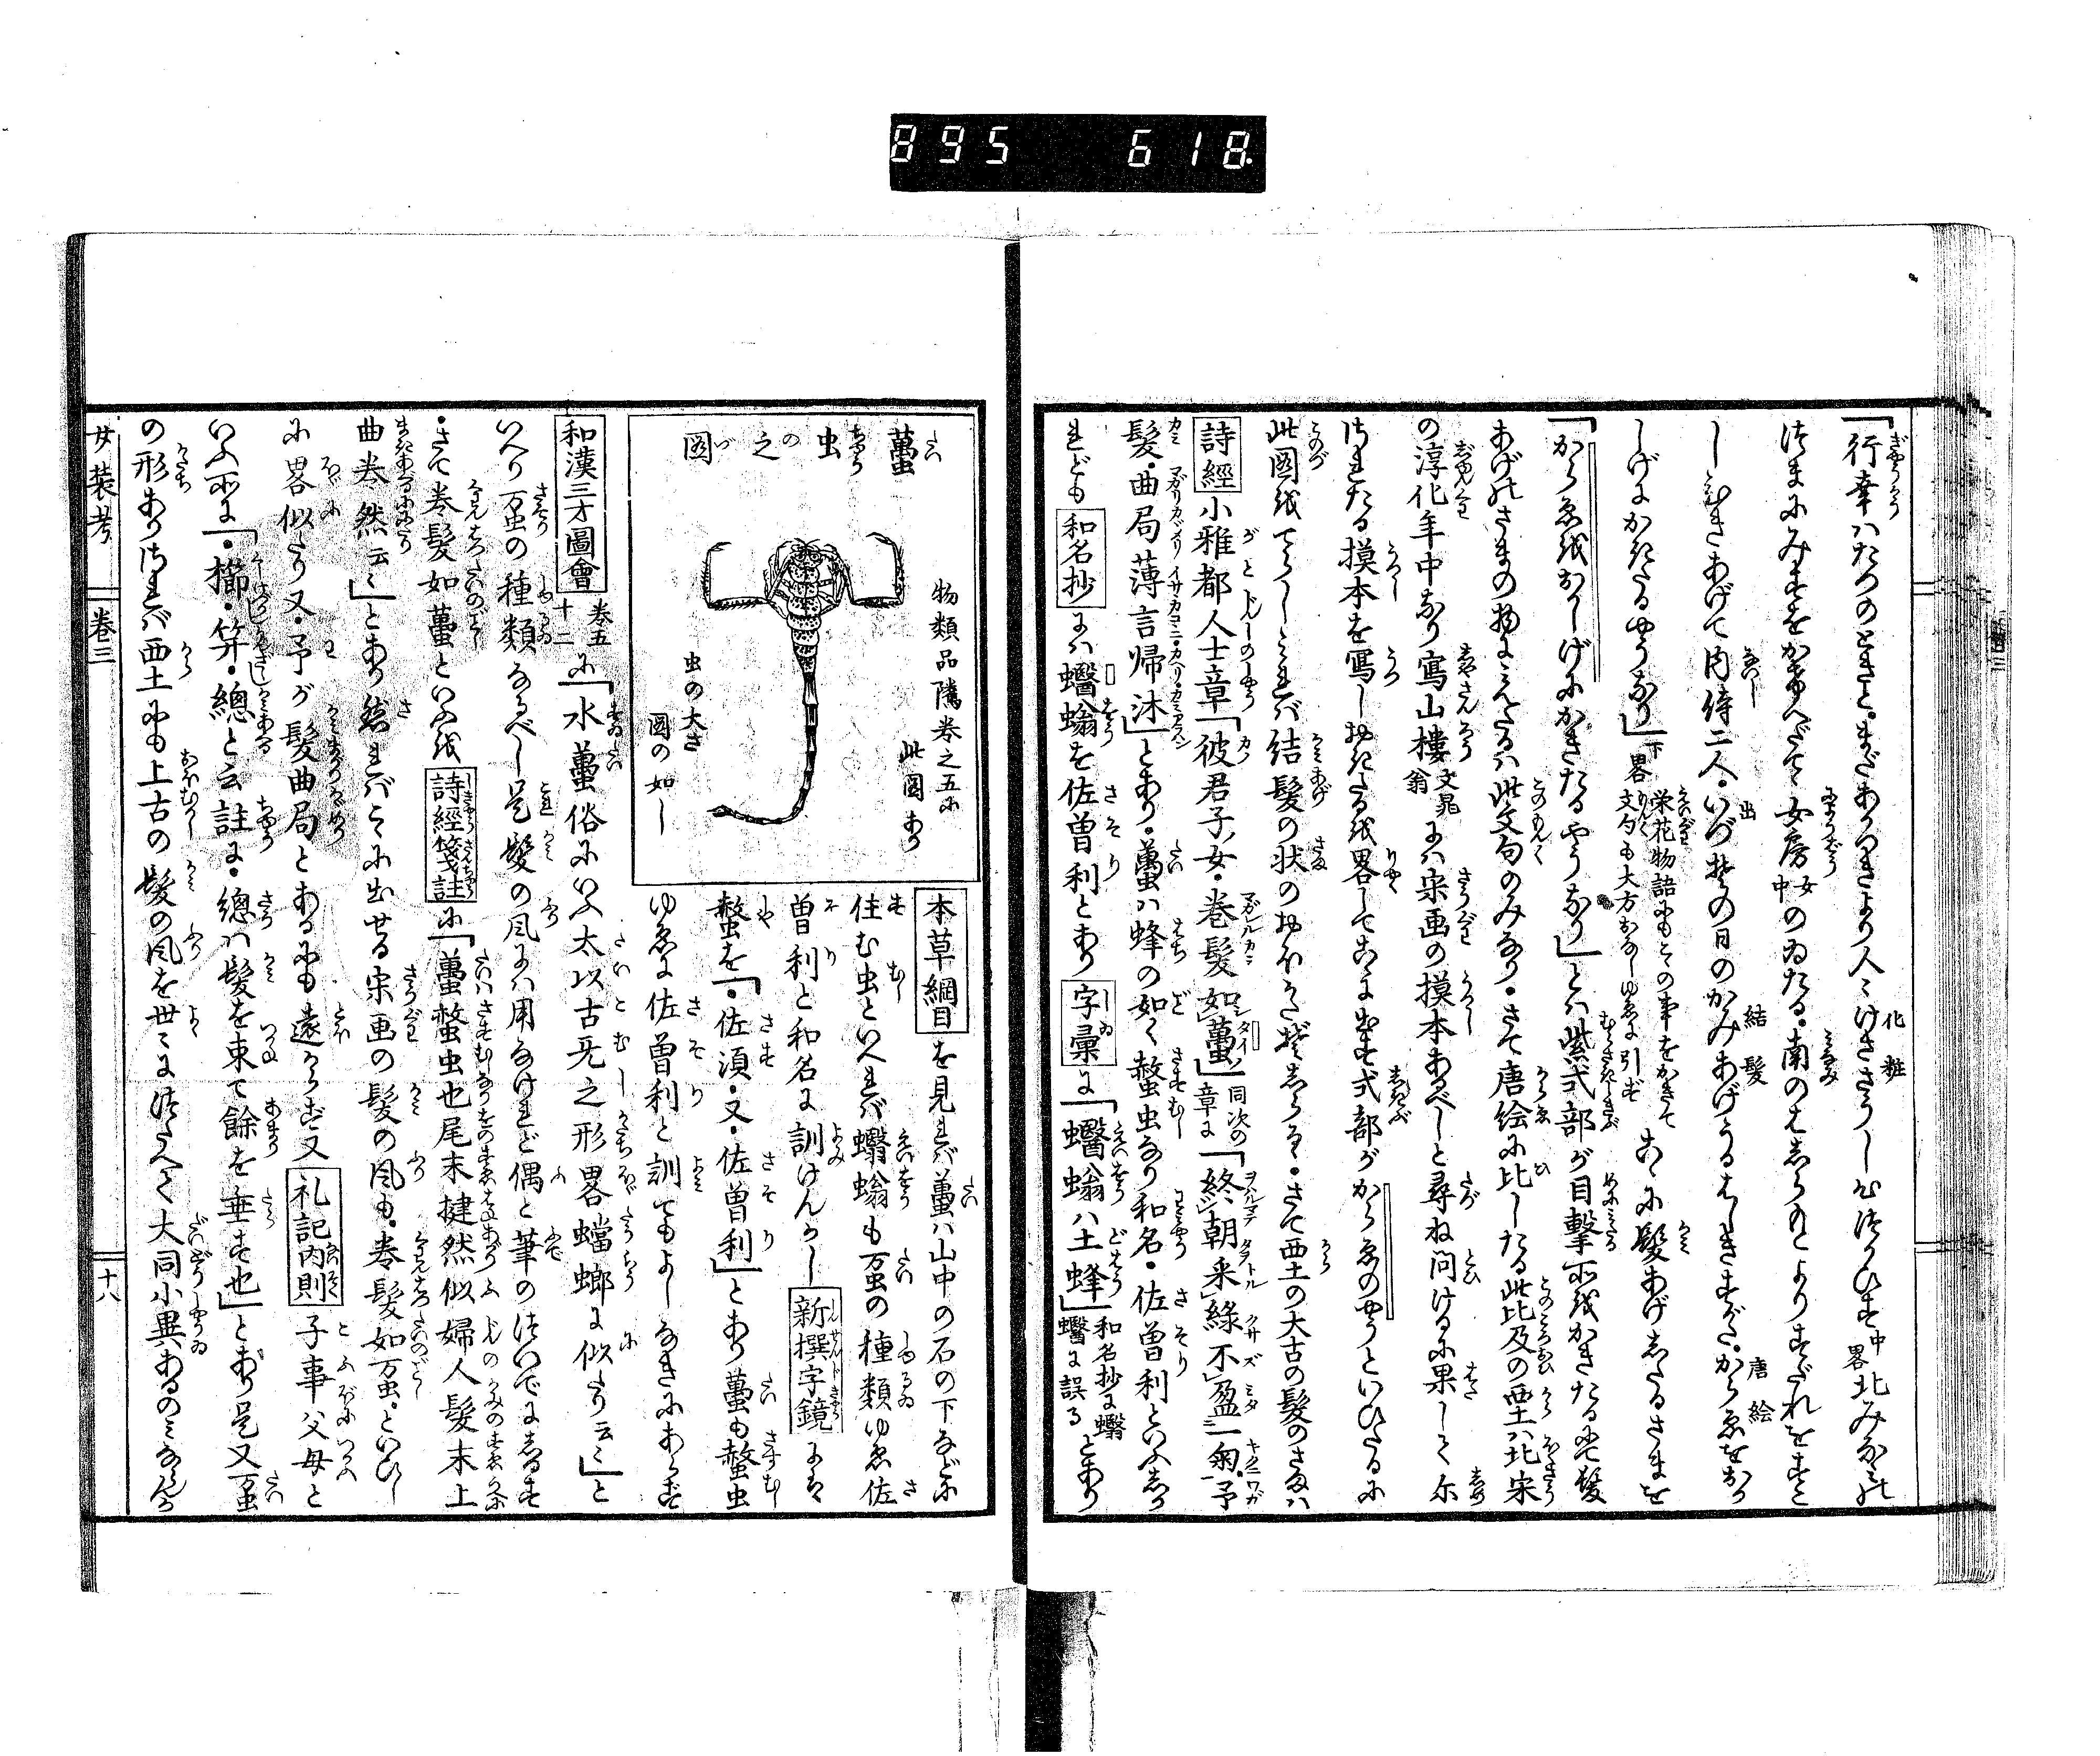 895 618.
「行幸ハたつのときと。まだあかつきより人〻けさうし心つかひす中畧北みなみの
つまにみすをかけへだてゝ女房女中のゐたる。南のはしらもとよりすだれをすこ
しひきあげて内侍二人。いづ其の日のかみあげうるはしきすがた。からゑをおか
しげにかきたるやうなり」下畧
栄花物語にもこの事をかきて文句も大方おなじゆゑに引ず
こゝに髪あげしたるさまを
「からゑをおかしげにかきたるやうなり」とハ紫式部が目撃所をかきたるに髪
あげのさまの物にみえたるハ此文句のみなり・さて唐絵に比したる此比及の西土ハ北宋
の淳化年中なり寫山樓文晁翁にハ宋画の摸本あるべしと尋ね問けるに果してかり
つれたる摸本を寫しおきたるを畧してこゝに出す式部がからゑのやうといひたるに
此図をてらしみれバ結髪の状のおほかたぞしらる・さて西土の大古の髪のさまハ
詩經小雅都人士章「彼君子女・巻髪如蠆」同次の章に「終朝采綠不盈一匊予
髪・曲局薄言帰沐」とあり・蠆ハ蜂の如く螫虫なり和名・佐曽利といふしか
れども和名抄にハ蠮螉を佐曽利とあり字彙に「蠮螉ハ土蜂」和名抄に蠮蠮に誤るとあり
蠆虫之図
物類品隲巻之五に
此図あり
虫の大さ
図の如し
本草綱目を見れバ蠆ハ山中の石の下などに
住む虫といへれバ蠮螉も蠆の種類ゆゑ佐
曽利と和名に訓けんかし新撰字鏡にハ
螫を「・佐須・又・佐曽利」とあり蠆も螫虫
ゆゑに佐曽利と訓てもよしなきにあらず
和漢三才圖會巻五十二に「水蠆俗にいふ太以古无之形畧蟷螂に似たり云〻」と
いへり虿の種類なるべし是髪の風にハ用なけれど偶と筆のついでにしるす
・さて巻髪如蠆といふを詩經箋註に「蠆螫虫也尾末揵然似婦人髪末上
曲巻然云〻」とあり然れバこゝに出せる宋画の髪の風も・巻髪如虿・といひし
に畧似たり又・予が髪曲局とあるにも遠からず又礼記内則子事父母と
いふ所に「・櫛・笄・總と云註に・總ハ髪を束て餘を垂す也」とあり是又虿
の形ありつれバ西土にも上古の髪の風を世〻につたへて大同小異あるのミなんか
女装考
巻三
十八